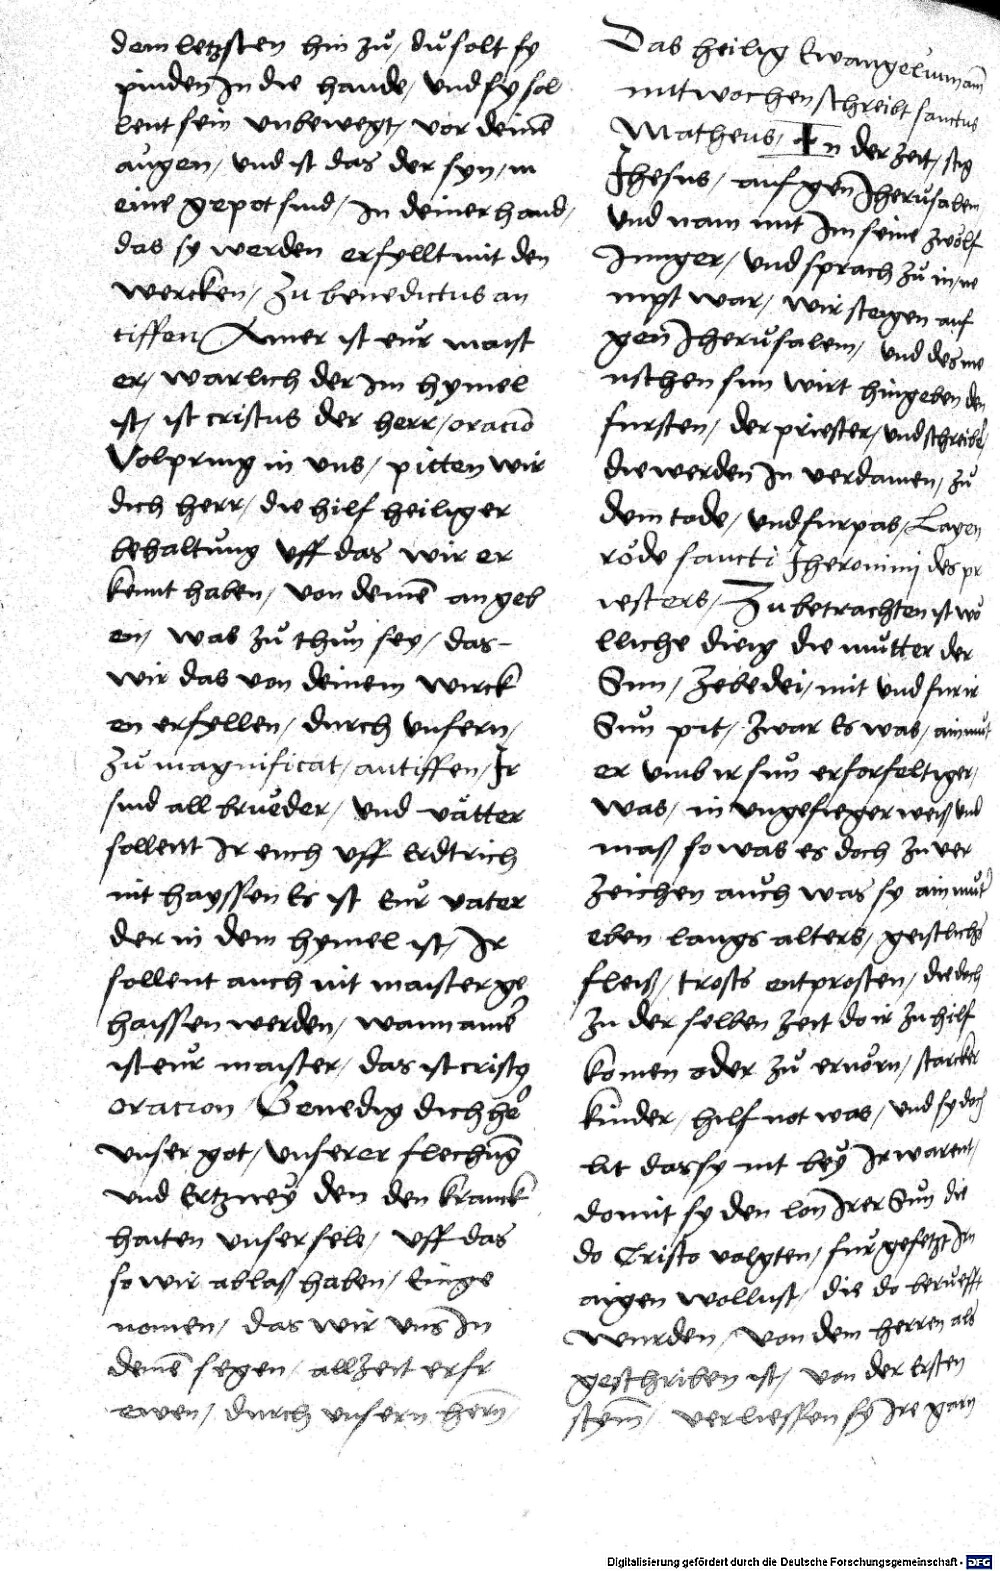 dem letzsten hin zů / dů solt sy
pinden In die hande / Und sy sol
lent sein unbewegt / vor deinē
augen / und ist das der syn / in
eine gepot sind / In deiner hand /
das sy werden erfyllt mit den
wercken / Zu benedictus an
tiffen Ainer ist eur maist
er / warlich der Im hymel
ist / ist cristus der herr / oracio
Volpring in uns / pitten wir
dich herr / die hilf heiliger
behaltung Uff das wir er
kennt haben / von deinē angeb
en / was zů thůn sey / das-
wir das von deinem wirck
en erfyllen / durch unsern /
Zu magnificat / antiffen / Ir
sind all brueder / und vätter
sollent Ir euch uff Erdtrich
nit hayssen Es ist Eur vater
der in dem hymel ist / Ir
sollent auch nit maister ge
haissen werden / wann ainer
ist eur maister / das ist cristus
oracion / Genedig dich her
unser got / unserer flechung
und Ertzney den den kranck
haiten unser sele / uff das
so wir ablaß haben / Einge
nomen / das wir uns In
deinē segen / allzeit erfr
ewen / durch unsern hern /
Das heilig Ewangelium am
mitwochen schreibt sanctus
Matheus / In der zeit / stig
Jhesus / auf gen Jherusalem
Und nam mit Im seine zwölf
Junger / und sprach zů in / ne
mpt war / wir steigen auf
gen Jherusalem / und des me
nschen sun wirt hingeben den
fursten / der priester / und schreiber /
die werden In verdamen / zů
dem tode / und furpas / Layen
röde sancti Jheronimi des pr
iesters / Zu betrachten ist wö
lliche ding die můtter der
Sun / Zebedei / mit und fur ir
Sun pit / zwar Es was / ain mut
er umb ir sun erforfeltiger /
was / in ungefieger weiß und
maß so was es doch zu ver
zeichen auch was sy ain muter
eben langs alters / geistlichs
fleiß / trosts entprosten / die doch
zu der selben zeit do ir zu hilf
komen oder zů ernörn / starcker
kinder / hilf not was / und sy doch
lit das sy nit bey Ir warent /
domit sy den lon Irer Sun die
do Cristo volgten / fur gesetzt Irn
aigen wollust / die do berüefft
wurden / von dem herren als
geschriben ist / von der Ersten
stym / verliessen sy Ire garn
Digitalisierung gefördert durch die Deutsche Forschungsgemeinschaft - DFG